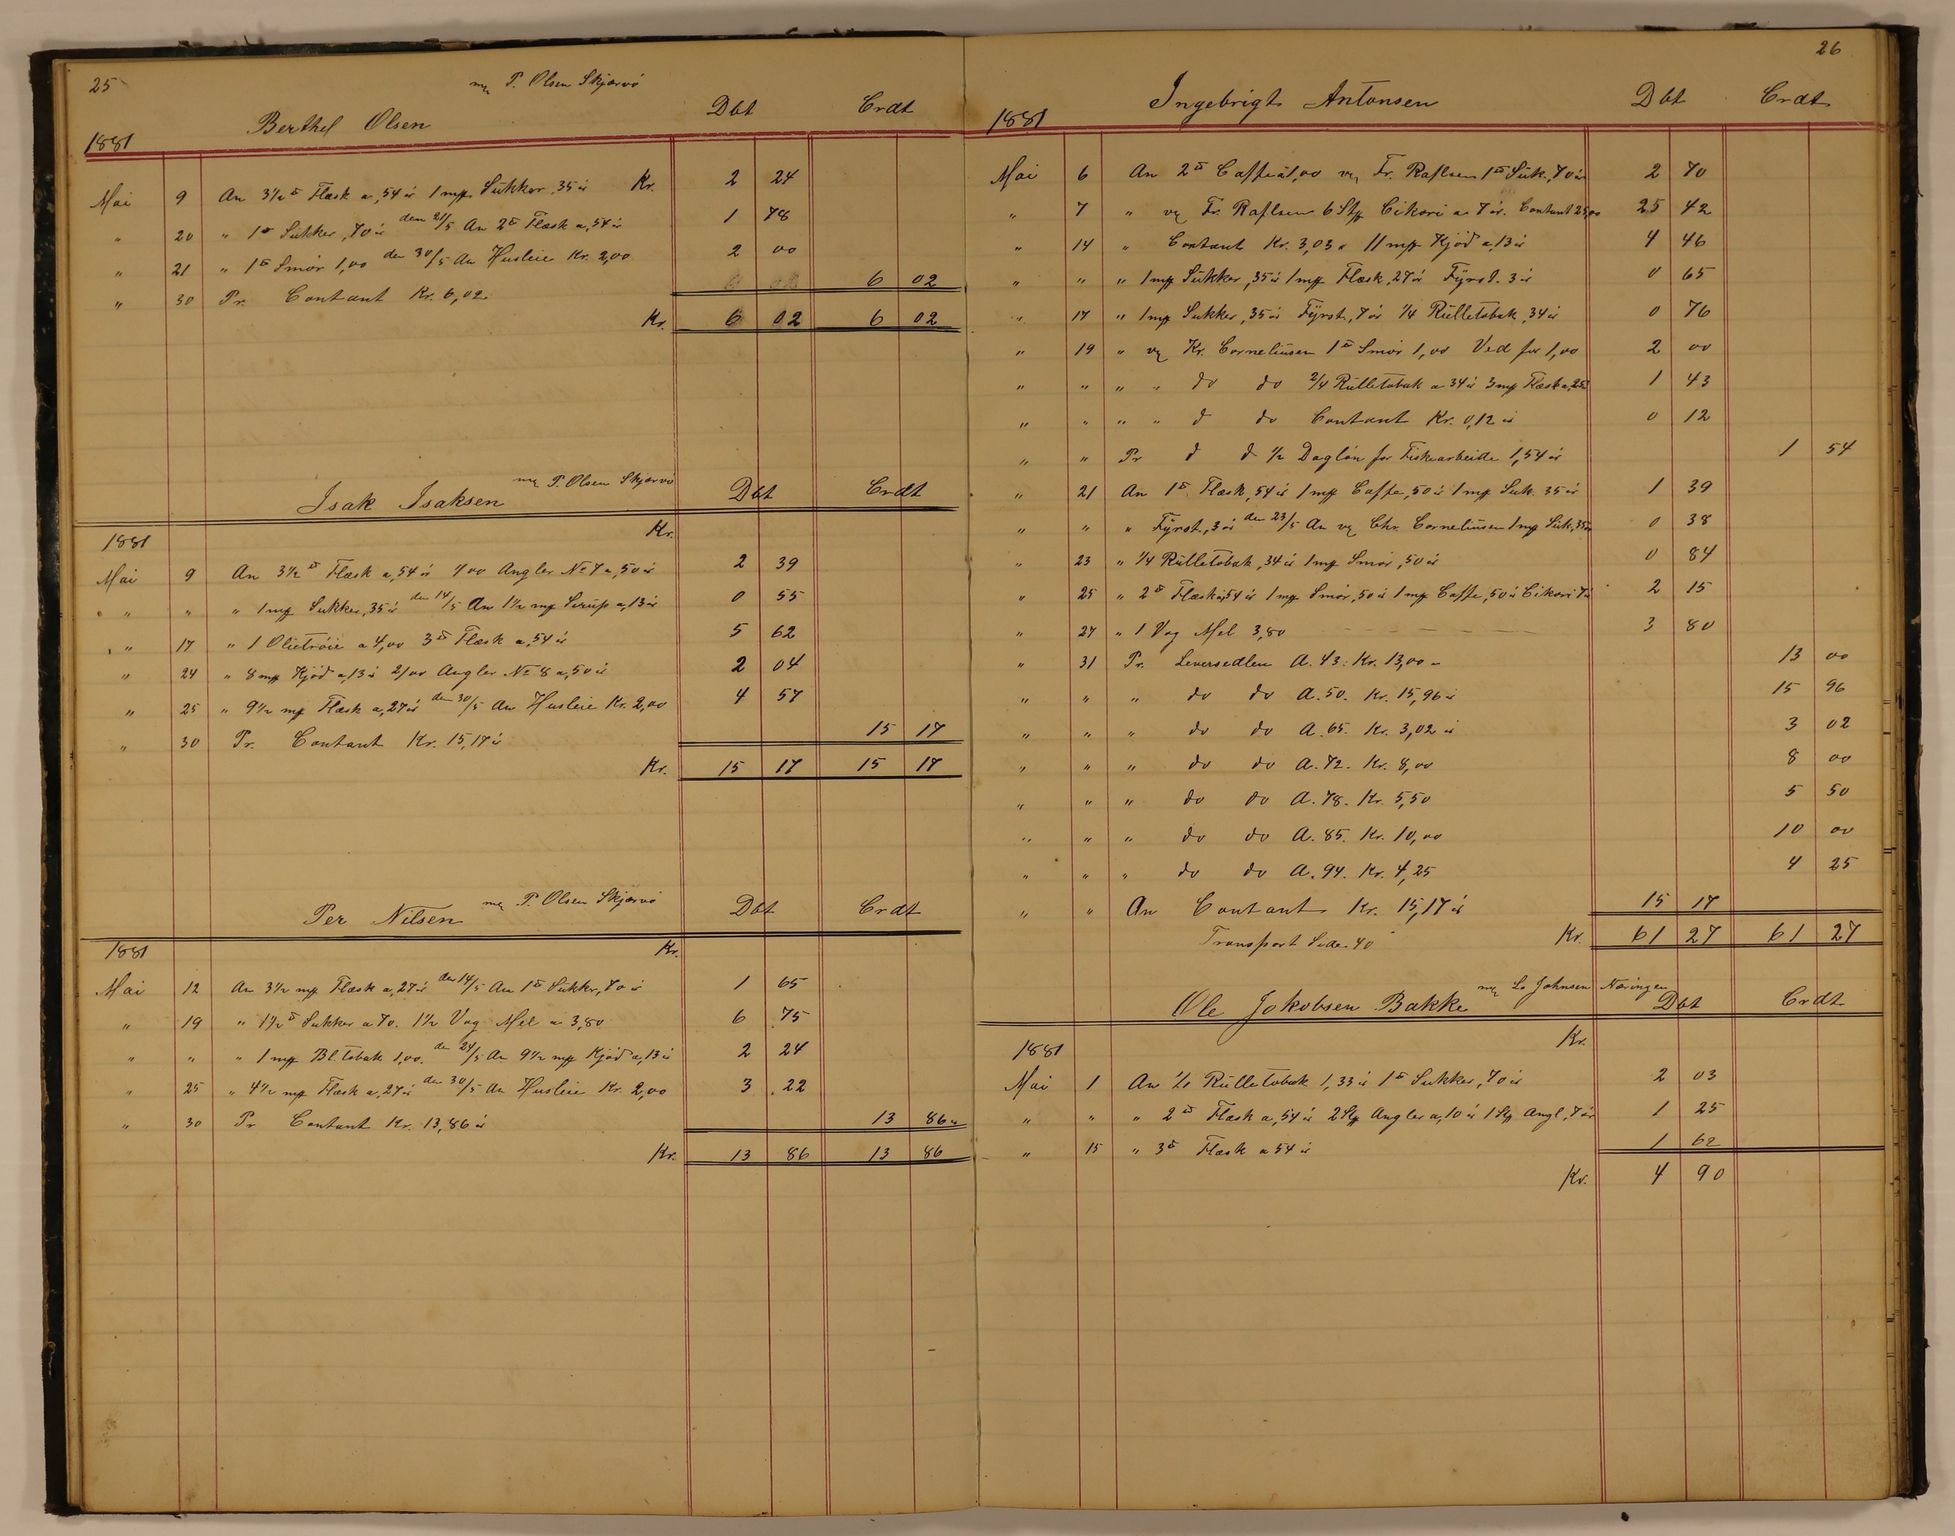 25
P. Olsen Skjærvö
Berthel Olsen Dbt Crdt
1881
Mai 9 An 3½ ℔ Flæsk a ,54 ör 1 mrk Sukker ,35 ör Kr. 2 24
" 20 " 1 ℔ Sukker ,70 ör den 21/5 An 2 ℔ Flæsk a ,54 ör 1 78
" 21 " 1 ℔ Smör 1,00 den 30/5 An Husleie Kr. 2,00 2 00
" 30 Pr. Contant Kr. 6,02 6 02
Kr. 6 02 6 02
P. Olsen Skjærvö
Isak Isaksen Dbt Crdt
1881 Kr.
Mai 9 An 3½ ℔ Flæsk a ,54 ör 4 00 Angler No 7 a ,50 ör 2 39
" " " 1 mrk Sukker ,35 ör den 14/5 An 1½ mrk Sirup a ,13 ör 0 55
" 17 " 1 Olietröie a 4,00 3 ℔ Flæsk a ,54 ör 5 62
" 24 " 8 mrk Kjöd a ,13 ör 2/00 Angler No 8 a ,50 ör 2 04
" 25 " 9½ mrk Flæsk a ,27 ör den 30/5 An Husleie Kr. 2,00 4 57
" 30 Pr. Contant Kr. 15,17 ör 15 17
Kr. 15 17 15 17
P. Olsen Skjærvö
Per Nilsen Dbt Crdt
1881 Kr.
Mai 12 An 3½ mrk Flæsk a ,27 ör den 14/5 An 1 ℔ Sukker ,70 ör 1 65
" 19 " 1½ ℔ Sukker a 70. 1½ Vog Mel a 3,80 6 75
" " " 1 mrk Bl. tobak 1,00. den 24/5 An 9½ mrk Kjöd a ,13 ör 2 24
" 25 " 4½ mrk Flæsk a ,27 ör den 30/5 An Husleie Kr. 2,00 3 22
" 30 Pr Contant Kr. 13,86 ör 13 86
Kr. 13 86 13 86
26
Ingebrigt Antonsen Dbt Crdt
1881
Mai 6 An 2 ℔ Caffe a 1,00 Fr. Raflsen 1 ℔ Suk. ,70 ör 2 70
" 7 " Fr. Raflsen 6 Stk Cikori a 7 ör. Contant 25,00 25 42
" 14 " Contant Kr. 3,03 " 11 mrk Kjöd a ,13 ör 4 46
" " " 1 mrk Sukker ,35 ör 1 mrk Flæsk ,27 ör Fyrst. 3 ör 0 65
" 17 " 1 mrk Sukker ,35 ör Fyrst. ,7 ör ¼ Rulletobak ,34 ör 0 76
" 19 " Kr. Corneliusen 1 ℔ Smör 1,00 Ved for 1,00 2 00
" " " " do do 2/4 Rulletobak a 34 ör 3 mrk Flæsk a ,25 1 43
" " " " d do Contant Kr. 0,12 ör 0 12
" " Pr d d ½ Daglön for Fiskearbeide 1,54 ör 1 54
" 21 An 1 ℔ Flæsk ,54 ör 1 mrk Caffe ,50 ör 1 mrk Suk. 35 ör 1 39
" " " Fyrst. ,3 ör den 23/5 An Chr. Corneliusen 1 mrk Suk. ,35 ör 0 38
" 23 " ¼ Rulletobak ,34 ör 1 mrk Smör ,50 ör 0 84
" 25 " 2 ℔ Flæsk a ,54 ör 1 mrk Smör ,50 ör 1 mrk Caffe ,50 ör Cikori 7 ör 2 15
" 27 " 1 Vog Mel 3,80 3 80
" 31 Pr. Leversedlen A. 43. Kr. 13,00 - 13 00
" " " do do A. 50. Kr. 15,96 ör 15 96
" " " do do A. 65. Kr. 3,02 ör 3 02
" " " do do A. 72. Kr. 8,00 8 00
" " " do do A. 78. Kr. 5,50 5 50
" " " do do A. 85. Kr. 10,00 10 00
" " " do do A. 94. Kr. 4,25 4 25
" " An Contant Kr. 15,17 ör 15 17
Transport Side 40 Kr. 61 27 61 27
Johnsen Næringen
Ole Jokobsen Bakke Dbt Crdt
1881 Kr.
Mai 1 An ½ Rulletobak 1,33 ör 1 ℔ Sukker ,70 ör 2 03
" " " 2 ℔ Flæsk a ,54 ör 2 Stk Angler a ,10 ör 1 Stk Angl. ,7 ör 1 25
" 15 " 3 ℔ Flæsk a 54 ör 1 62
Kr. 4 90